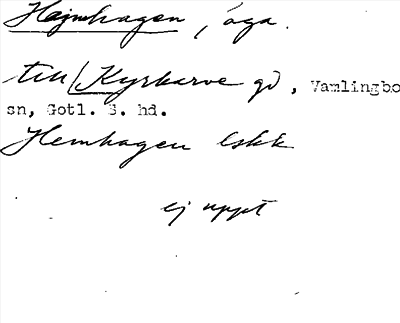 Hajnhagen, äga.
till Kyrkarve gd, Vamlingbo
sn, Gotl. S. hd.
Hemhagen lskk
ej uppt